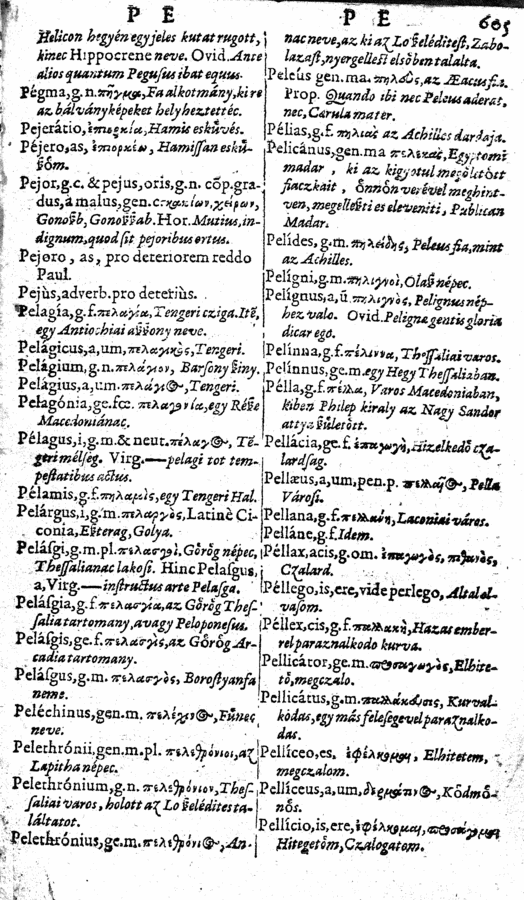 P E
P E 605
Helicon hegyén egy jeles kutat rugott,
kinec Hippocrene neve. Ovid. Ante
alios quantum Pegasus ibat equus.
Pégma, g.n. πῆγμα, Fa alkotmány, ki re
az bálványképeket helyheztettéc.
Pejerátio, ἐπιορκία, Hamis eskűvés.
Péjero, as, ἐπιορκέω, Hamissan eskű-
ßöm.
Pejor, g.c. & pejus, oris, g.n. cõp. gra-
dus, a malus, gen.c. κακίων, χείρων,
Gonoßb, Gonoßßab. Hor. Mutius, in-
dignum, quod sit pejoribus ortus.
Pejoro, as, pro deteriorem reddo
Paul.
Pejùs, adverb. pro deteriùs.
Pelagia, g.f. πελαγία, Tengeri cziga. Itẽ,
egy Antiochiai aßßony neve.
Pelágicus, a, um, πελαγικὸς, Tengeri.
Pelágium, g.n. πελάγιον, Barsony ßiny.
Pelágius, a, um, πελάγιος, Tengeri.
Pelagónia, ge.fœ. πελαγονία, egy Réße
Macedoniánac.
Pélagus, i, g.m. & neut. πέλαγος, Tẽ-
geri mélseg. Virg. — pelagi tot tem-
pestatibus actus.
Pélamis, g.f. πηλαμὶς, egy Tengeri Hal.
Pelárgus, i, g.m. πελαργὸς, Latinè Ci-
conia, Eßterag, Golya.
Pelásgi, g.m. pl. πελασγοὶ, Görög népec,
Thessalianac lakosi. Hinc Pelasgus,
a, Virg. — instructus arte Pelasga.
Pelásgia, g.f. πελασγία, az Görög Thes-
salia tartomany, avagy Peloponesus.
Pelásgis, ge.f. πελασγὶς, az Görög Ar-
cadia tartomany.
Pelásgus, g.m. πελασγὸς, Borostyanfa
neme.
Peléchinus, gen.m. πελέχινος, Fűnec
neve.
Pelethrónii, gen.m.pl. πελεθρόνιοι, az
Lapitha népec.
Pelethrónium, g.n. πελεθρόνιον, Thes-
saliai varos, holott az Lo ßelédites ta-
láltatot.
Pelethrónius, ge.m. πελεθρόνιος, An-
nac neve, az ki az Lo ßeléditest, Zabo-
lazast, nyergellest elsöben talalta.
Peleús gen.ma. πηλεὺς, az Æacus fia.
Prop. Quando ibi nec Peleus aderat,
nec, Cærula mater.
Pélias, g.f. πηλιὰς az Achilles dardaja.
Pelicánus, gen.ma πελεκὰς, Egyptomi
madar, ki az kigyotul megöletött
fiaczkait, önnön verével meghint-
ven, megeleßti es eleveniti, Publican
Madar.
Pelídes, g.m. πηλείδης, Peleus fia, mint
az Achilles.
Pelígni, g.m. πηλιγνοὶ, Olaß népec.
Pelígnus, a, ũ. πηλιγνὸς, Pelignus nép-
hez valo. Ovid. Peligna gentis gloria
dicar ego.
Pelínna, g.f. πέλιννα, Thessaliai varos.
Pelínnus, ge.m. egy Hegy Thessaliaban.
Pélla, g.f. πέλλα, Varos Macedoniaban,
kiben Philep kiraly az Nagy Sandor
attya ßületött.
Pellácia, ge.f. ἐπαγωγὴ, Hizelkedö cza-
lardsag.
Pellæus, a, um, pen.p. πελλαῖος, Pella
Városi.
Pellana, g.f. πελλαίνη, Laconiai város.
Pelláne, g.f. Idem.
Péllax, acis, g.om. ἐπαγωγὸς, πιθανὸς,
Czalard.
Péllego, is, ere, vide perlego, Altalol-
vasom.
Péllex, cis, g.f. παλλακὴ, Hazas ember-
rel paraznalkodo kurva.
Pellicátor, ge.m. προσαγωγὸς, Elhite-
tö, megczalo.
Pellicátus, g.m. παλλάκευσις, Kurval-
kodas, egy más felesegevel paraznalko-
das.
Pellíceo, es, ἐφέλκομαι, Elhitetem,
megczalom.
Pellíceus, a, um, δερμάτινος, Ködmö-
nös.
Pellício, is, ere, ἐφέλκομαι, προσάγομαι
Hitegetöm, Czalogatom.